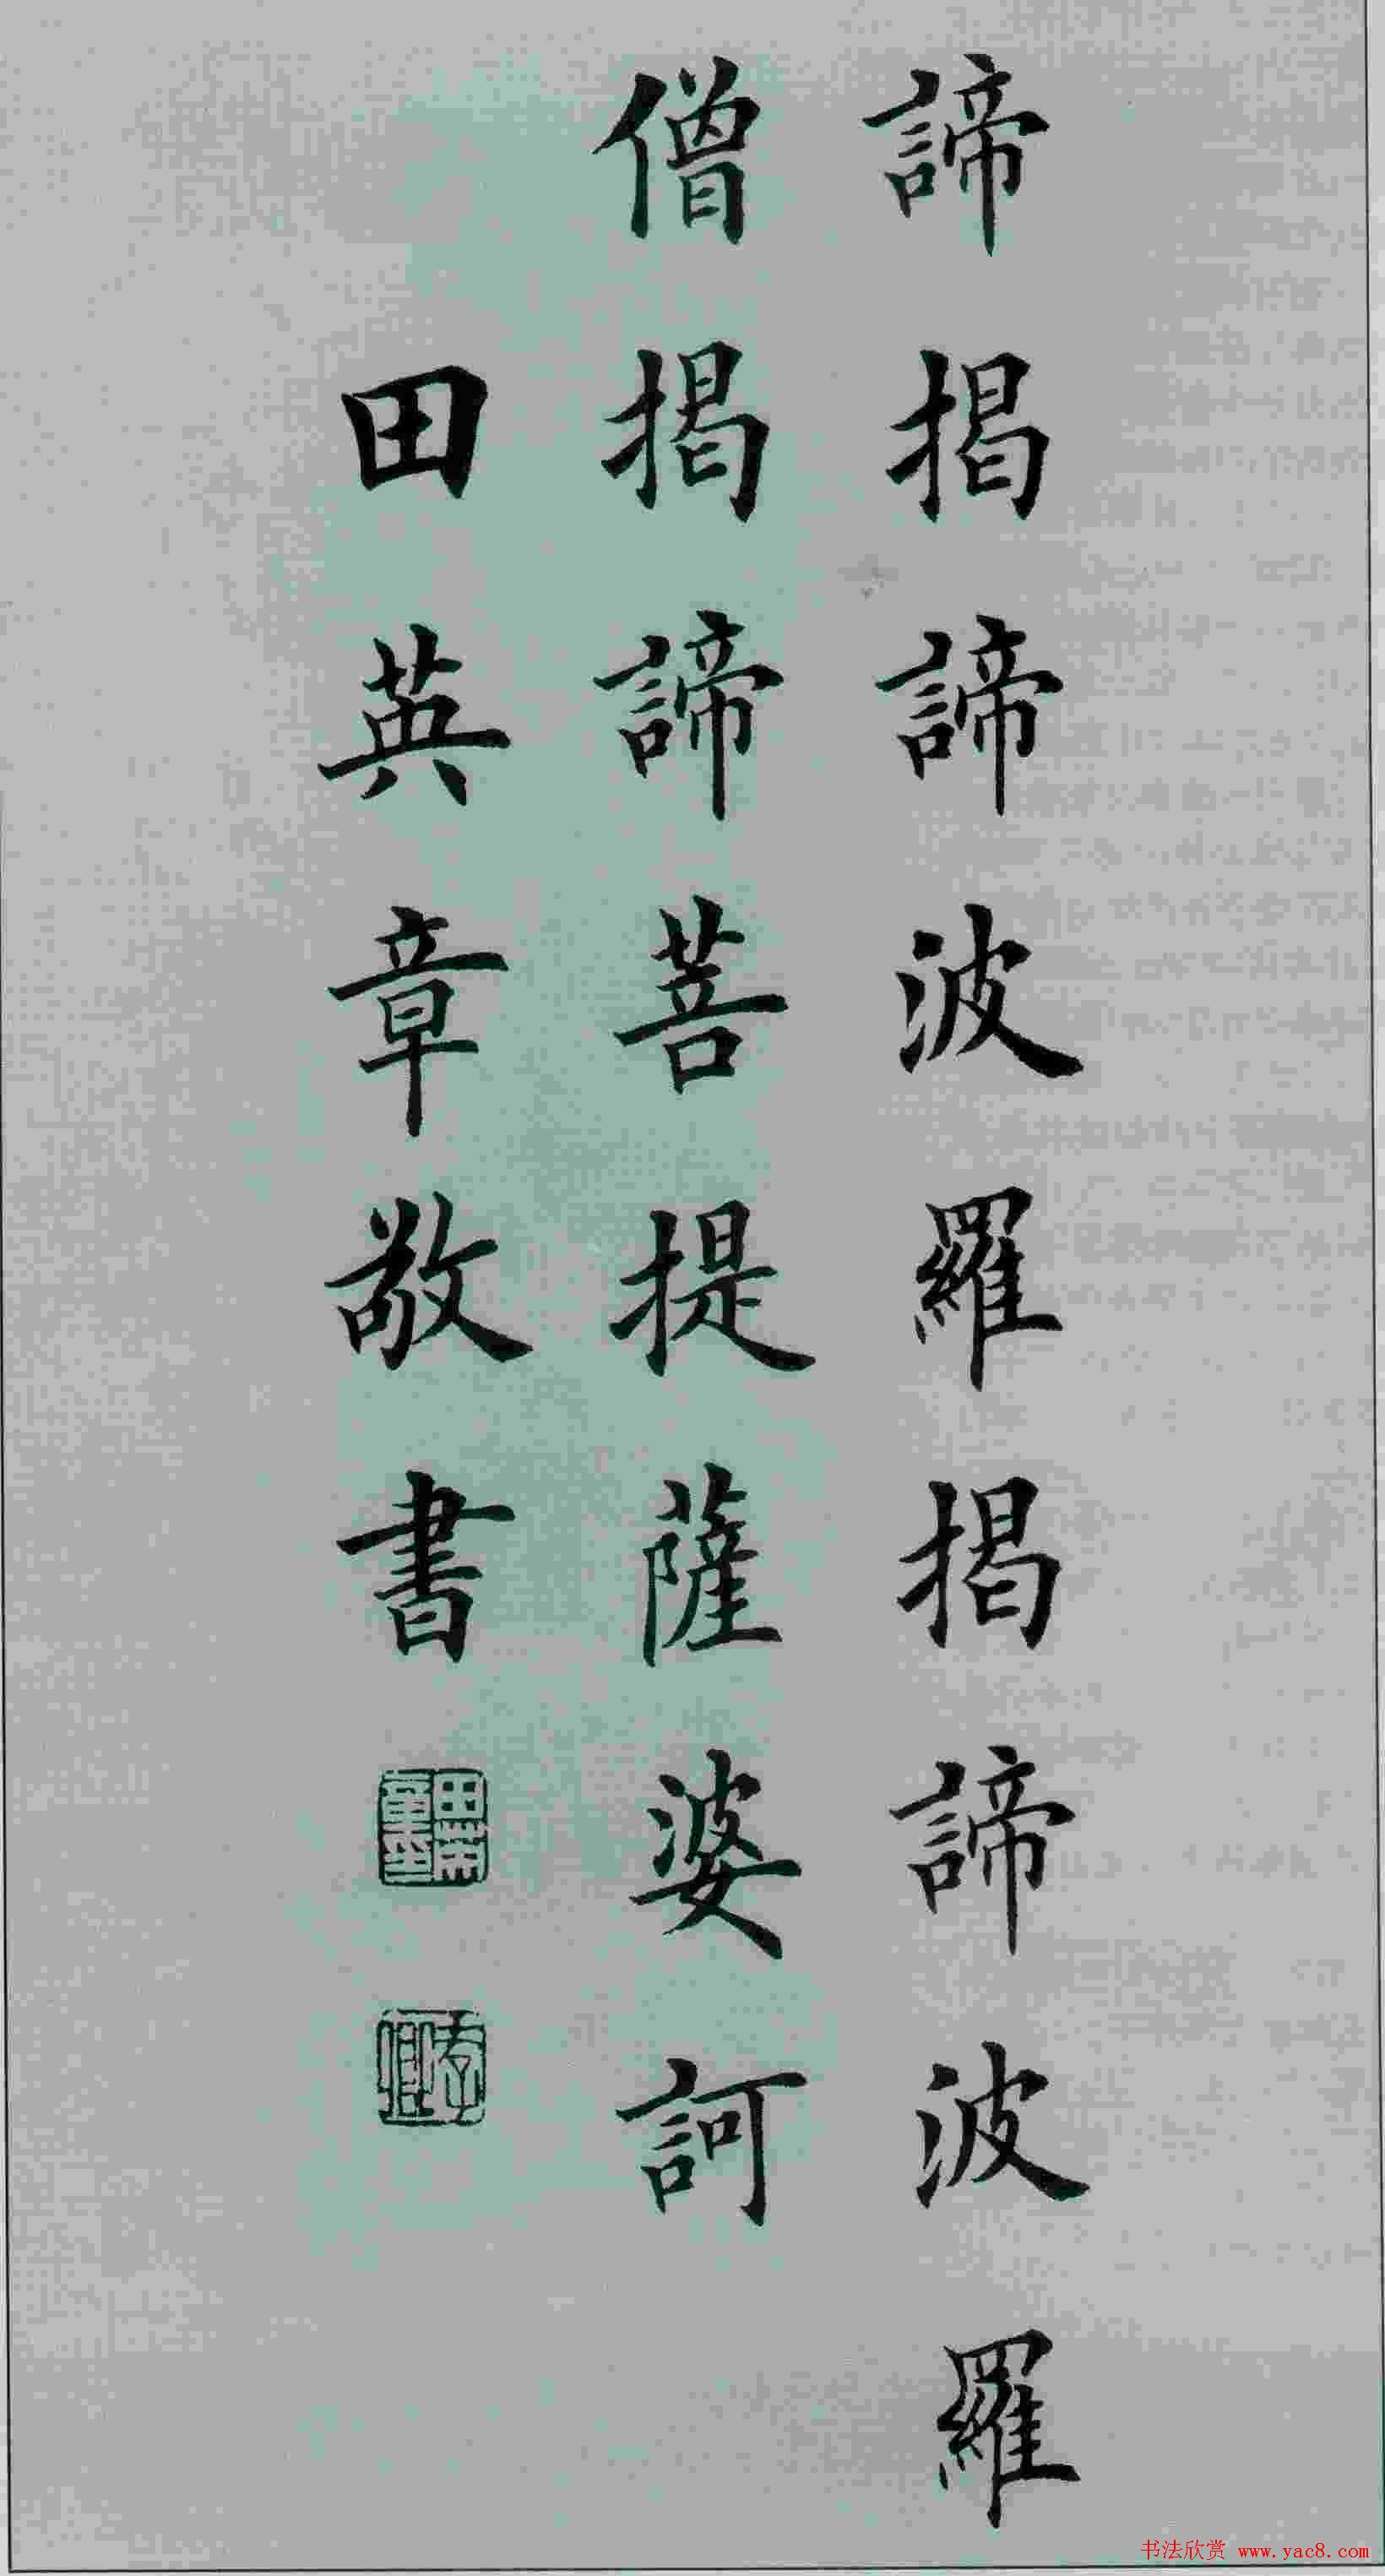 諦揭諦波羅揭諦波羅
僧揭諦菩提薩婆訶
田英章敬書
书法欣赏 www.yac8.com